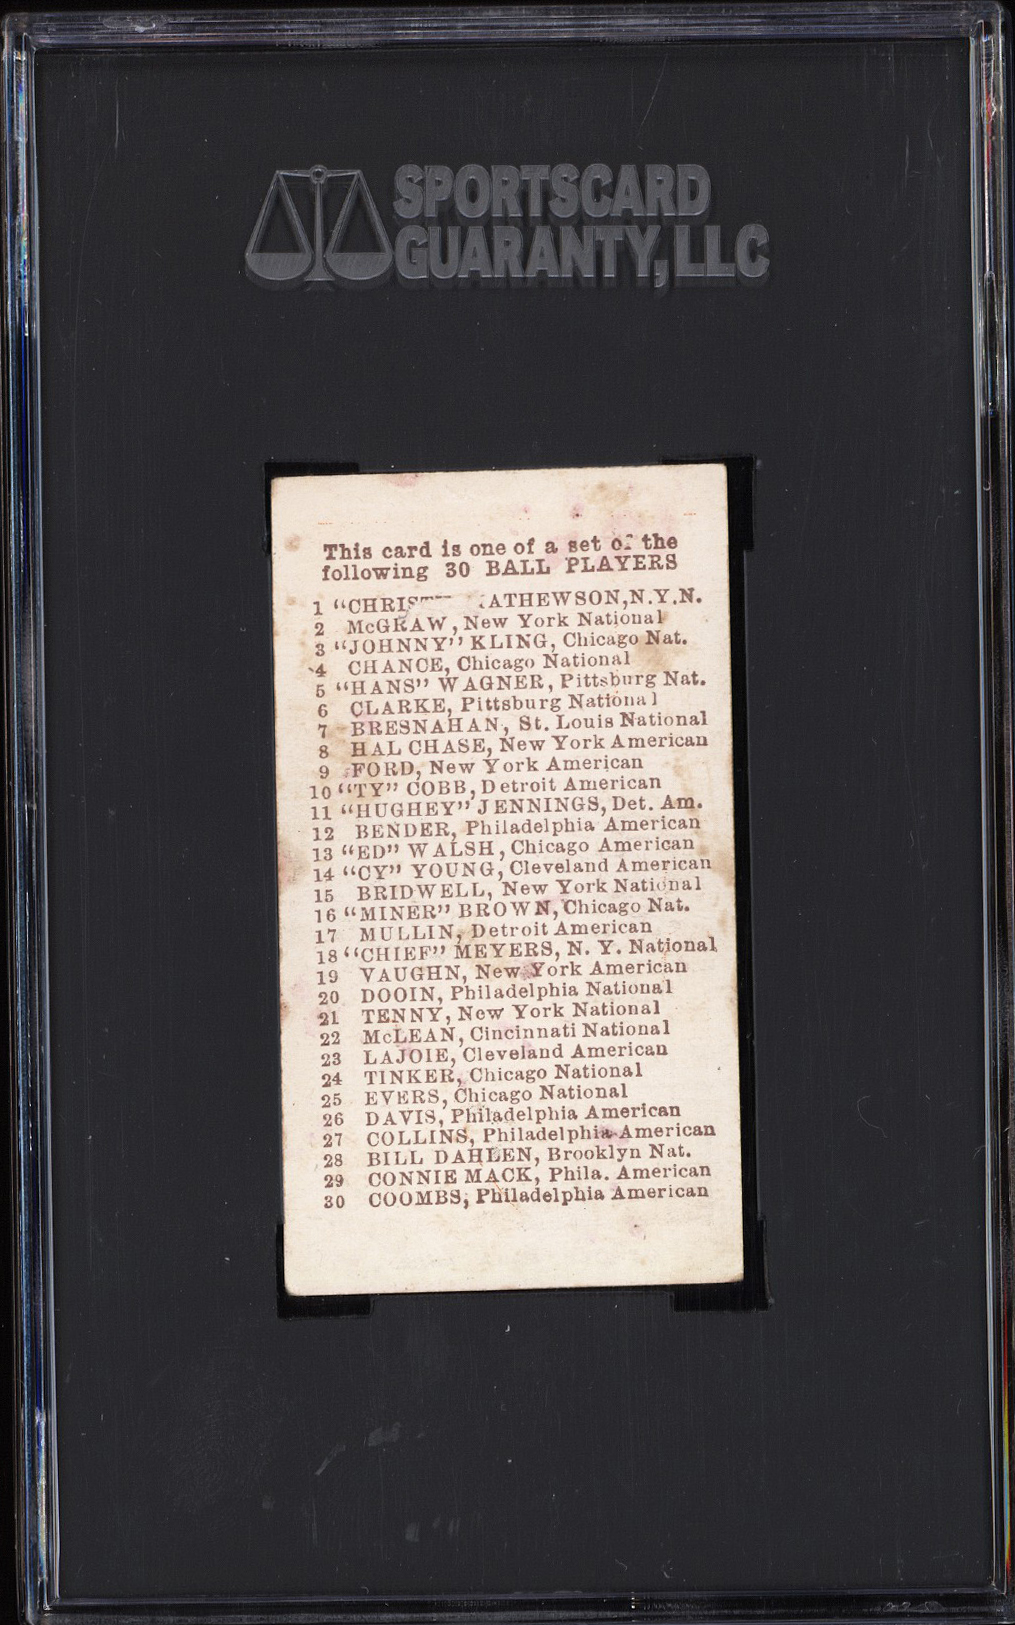 SPORTSCARD
GUARANTY, LLC
This card is one of a set of the
following 30 BALL PLAYERS
1 "CHRIST ATHEWSON, N.Y.N.
2 McGRAW, New York National
3 "JOHNNY" KLING, Chicago Nat.
4 CHANCE, Chicago National
5 "HANS" WAGNER, Pittsburg Nat.
6 CLARKE, Pittsburg National
7 BRESNAHAN, St. Louis National
8 HAL CHASE, New York American
9 FORD, New York American
10 "TY" COBB, Detroit American
11 "HUGHEY" JENNINGS, Det. Am.
12 BENDER, Philadelphia American
13 "ED" WALSH, Chicago American
14 "CY" YOUNG, Cleveland American
15 BRIDWELL, New York National
16 "MINER" BROWN, Chicago Nat.
17 MULLIN, Detroit American
18 "CHIEF" MEYERS, N. Y. National
19 VAUGHN, New York American
20 DOOIN, Philadelphia National
21 TENNY, New York National
22 McLEAN, Cincinnati National
23 LAJOIE, Cleveland American
24 TINKER, Chicago National
25 EVERS, Chicago National
26 DAVIS, Philadelphia American
27 COLLINS, Philadelphia American
28 BILL DAHLEN, Brooklyn Nat.
29 CONNIE MACK, Phila. American
30 COOMBS, Philadelphia American